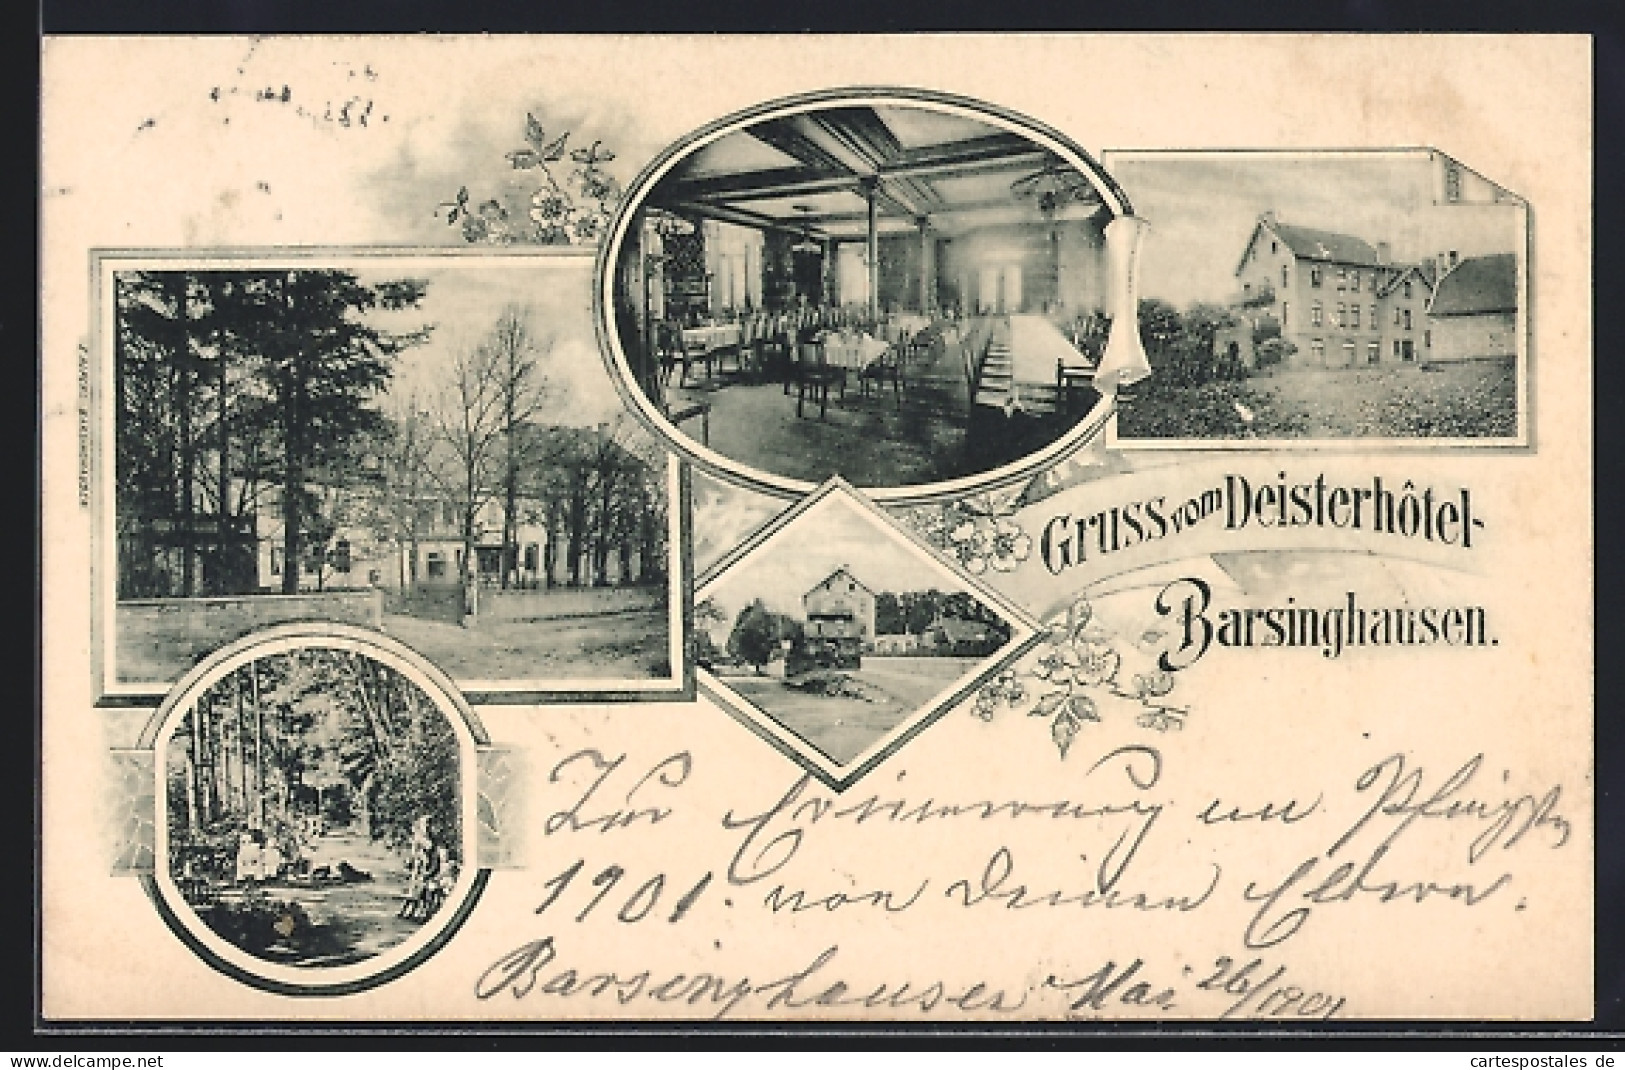 Gruss vom Deisterhôtel-
Barsinghausen.
Zur Erinnerung an Pfingsten
1901. von Deinen Eltern.
Barsinghausen Mai 26/1901
oldthing.de
cartespostales de